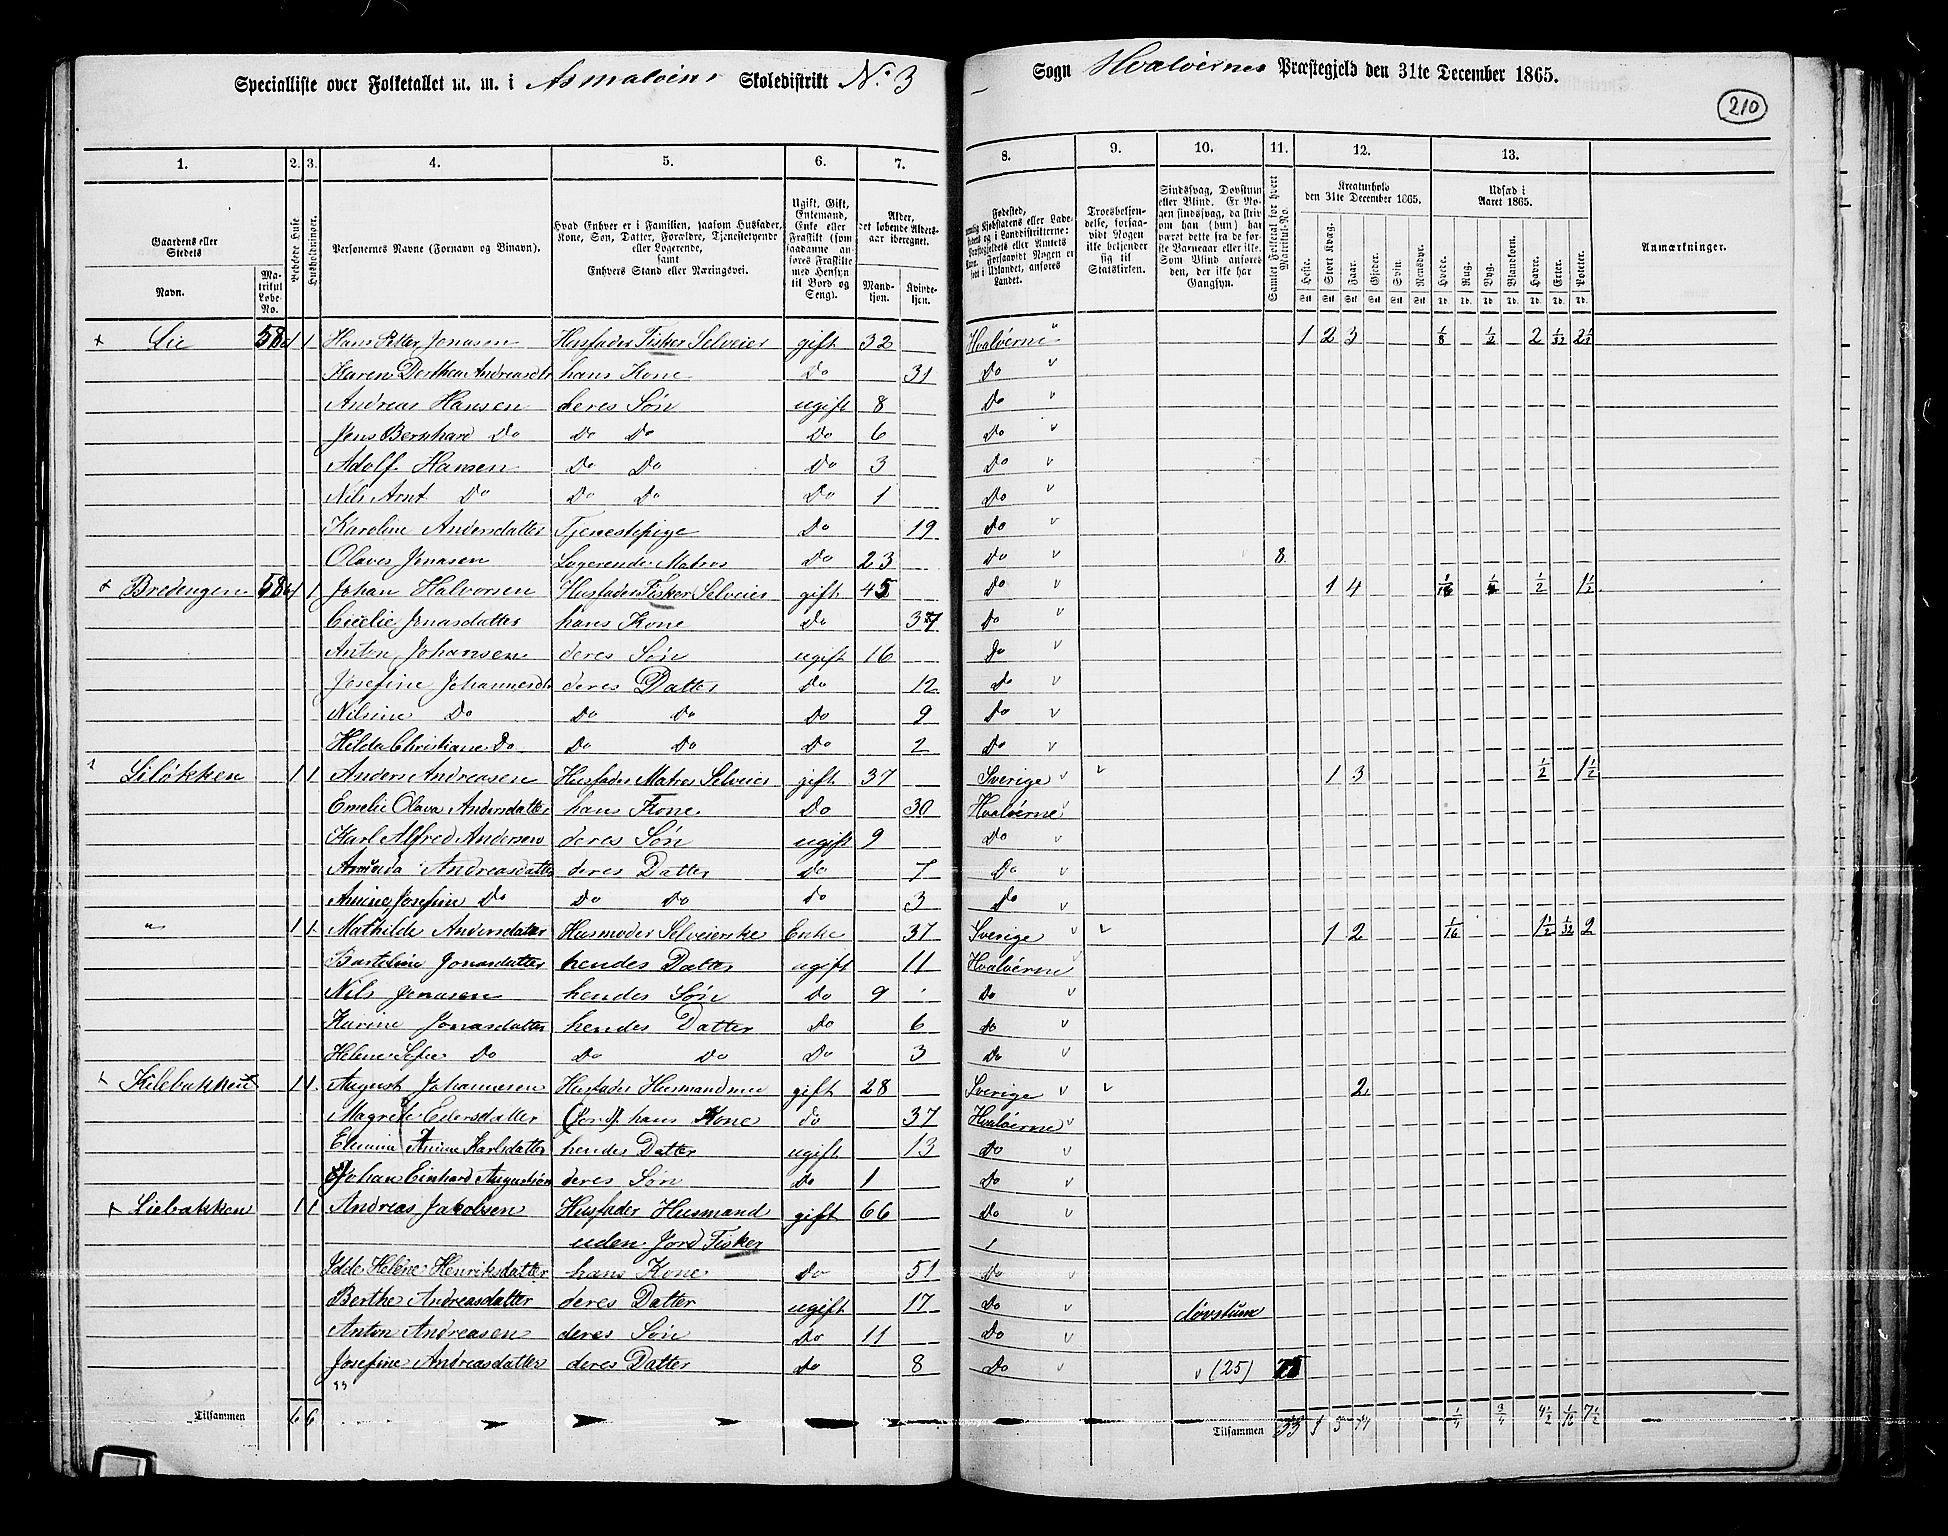 Specialliste over Folketallet m. m. i Asmaløens Skoledistrikt No. 3 Sogn Hvaløernes Præstegjeld den 31te December 1865.
210
1. 2. 3. 4. 5. 6. 7. 8. 9. 10. 11. 12. 13.
Gaardens eller Stedets Navn. Matrikul Løbe-No. Beboede Huse Husholdninger. Personernes Navne (Fornavn og Binavn). Hvad Enhver er i Familien, saasom Husfader, Kone, Søn, Datter, Forældre, Tjenestetyende eller Logerende, samt Enhvers Stand eller Næringsvei. Ugift, Gift, Enkemand, Enke eller Fraskilt (som saadanne anføres Fraskilte med Hensyn til Bord og Seng). Alder, det løbende Alders-aar iberegnet. Mandkjøn. Kvindekjøn. Troesbekjendelse, forsaavidt Nogen ikke bekjender sig til Statskirken. Sindssvag, Døvstum eller Blind. Samlet Folketal for hvert Matrikul-No. Kreaturhold den 31te December 1865. Heste. Stort Kvæg. Faar. Gjeder. Svin. Rensdyr. Udsæd i Aaret 1865. Hvede. Rug. Byg. Blandkorn. Havre. Erter. Poteter. Anmærkninger.
Lie 58a 1 1 Hans Petter Jonasen Husfader Fisker Selveier gift 32 Hvaløerne 1 2 3 1/8 1/2 2 1/32 2 1/2
Karen Dorthea Andreasdtr hans Kone Do 31 Do
Andreas Hansen deres Søn ugift 8 Do
Jens Bernhard Do Do Do Do 6 Do
Adolf Hansen Do Do Do 3 Do
Nils Arnt Do Do Do Do 1 Do
Karoline Andersdatter Tjenestepige Do 19 Do
Olaves Jonasen Logerende Matros Do 23 Do 8
Bredengen 58b 1 1 Johan Halvorsen Husfader Fisker Selveier gift 45 Do 1 4 1/16 1/4 1/2 1 1/2
Cecilie Jonasdatter hans Kone Do 37 Do
Anton Johansen deres Søn ugift 16 Do
Josefine Johannesdtr deres Datter Do 12 Do
Nilsine Do Do Do Do 9 Do
Hilda Christiane Do Do Do Do 2 Do
Liløkken 1 1 Anders Andreasen Husfader Matros Selveier gift 37 Sverige 1 3 1/2 1 1/2
Emelie Olava Andersdatter hans Kone Do 30 Hvaløerne
Karl Alfred Andersen deres Søn ugift 9 Do
Amanda Andreasdatter deres Datter Do 7 Do
Anine Josefine Do Do Do Do 3 Do
" 1 1 Mathilde Andersdatter Husmoder Selveierske Enke 37 Sverige 1 2 1/16 1 1/2 1/32 2
Barteline Jonasdatter hendes Datter ugift 11 Hvaløerne
Nils Jonasen hendes Søn Do 9 Do
Karine Jonasdatter hendes Datter Do 6 Do
Helene Sofie Do Do Do Do 3 Do
Kilebakken 1 1 August Johannesen Husfader Husmand gift 28 Sverige 2
Magrete hans Kone do 37 Hvaløerne
Anine Karlsdatter hendes Datter ugift 13 Do
Johan Augustsen deres Søn Do 1 Do
Liebakken 1 1 Andreas Jakobsen Husfader Husmand gift 66 Do
uden Jord Fisker
Helene Henriksdatter hans Kone do 51 Do
Berthe Andreasdatter deres Datter ugift 17 Do døvstum
Anton Andreasen deres Søn Do 11 Do
Josefine Andreasdatter deres Datter Do 8 Do (25) 25
33
Tilsammen 6 6 Tilsammen 33 1 5 14 1/4 3/4 4 1/2 1/16 7 1/2